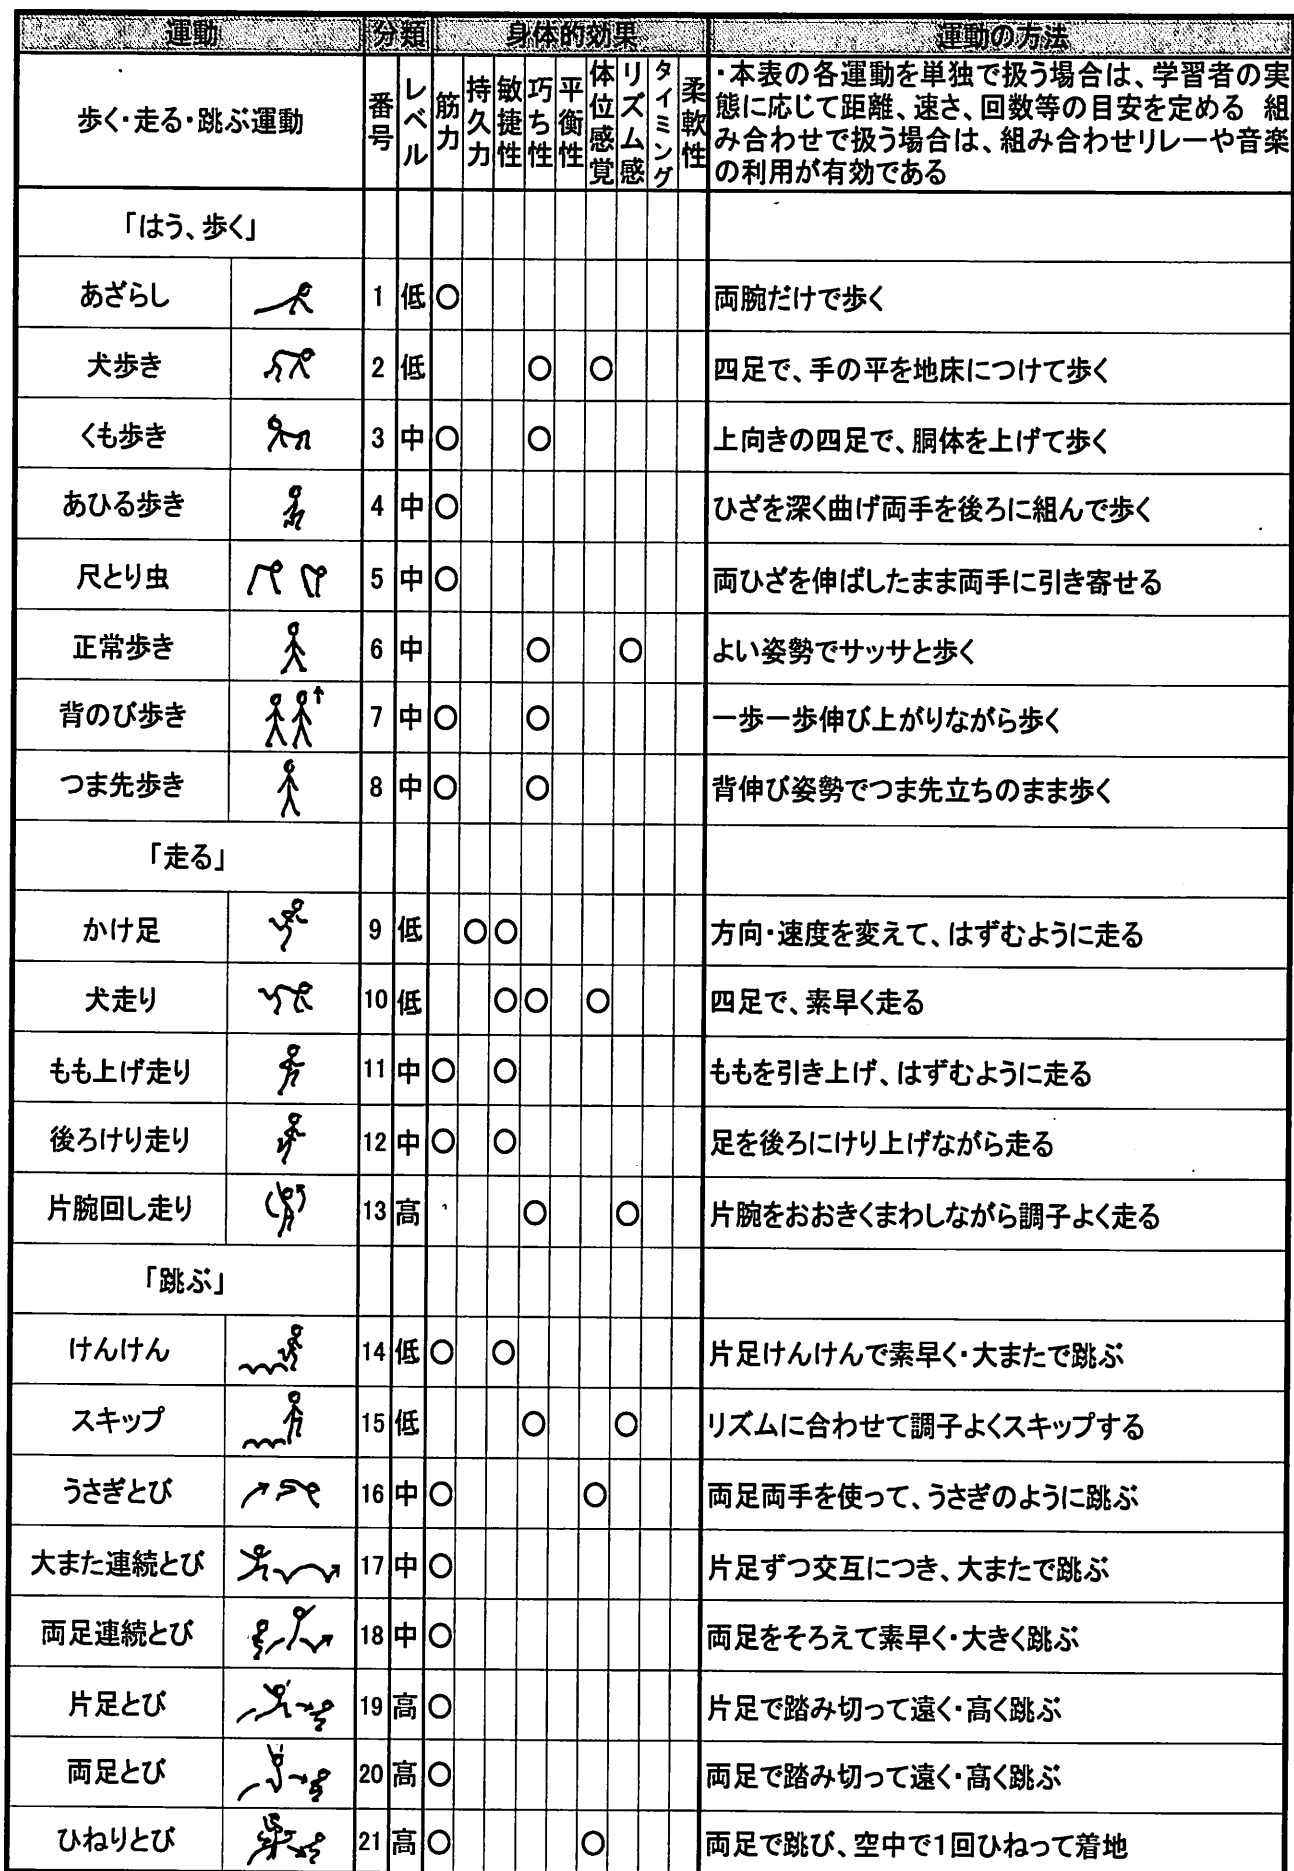 運動 分類 身体的効果 運動の方法
歩く・走る・跳ぶ運動 番号 レベル 筋力 持久力 敏捷性 巧ち性 平衡性 体位感覚 リズム感 タイミング 柔軟性
・本表の各運動を単独で扱う場合は、学習者の実
態に応じて距離、速さ、回数等の目安を定める 組
み合わせで扱う場合は、組み合わせリレーや音楽
の利用が有効である
「はう、歩く」
あざらし 1 低 ○ 両腕だけで歩く
犬歩き 2 低 ○ ○ 四足で、手の平を地床につけて歩く
くも歩き 3 中 ○ ○ 上向きの四足で、胴体を上げて歩く
あひる歩き 4 中 ○ ひざを深く曲げ両手を後ろに組んで歩く
尺とり虫 5 中 ○ 両ひざを伸ばしたまま両手に引き寄せる
正常歩き 6 中 ○ ○ よい姿勢でサッサと歩く
背のび歩き 7 中 ○ ○ 一歩一歩伸び上がりながら歩く
つま先歩き 8 中 ○ ○ 背伸び姿勢でつま先立ちのまま歩く
「走る」
かけ足 9 低 ○ ○ 方向・速度を変えて、はずむように走る
犬走り 10 低 ○ ○ ○ 四足で、素早く走る
もも上げ走り 11 中 ○ ○ ももを引き上げ、はずむように走る
後ろけり走り 12 中 ○ ○ 足を後ろにけり上げながら走る
片腕回し走り 13 高 ○ ○ 片腕をおおきくまわしながら調子よく走る
「跳ぶ」
けんけん 14 低 ○ ○ 片足けんけんで素早く・大またで跳ぶ
スキップ 15 低 ○ ○ リズムに合わせて調子よくスキップする
うさぎとび 16 中 ○ ○ 両足両手を使って、うさぎのように跳ぶ
大また連続とび 17 中 ○ 片足ずつ交互につき、大またで跳ぶ
両足連続とび 18 中 ○ 両足をそろえて素早く・大きく跳ぶ
片足とび 19 高 ○ 片足で踏み切って遠く・高く跳ぶ
両足とび 20 高 ○ 両足で踏み切って遠く・高く跳ぶ
ひねりとび 21 高 ○ ○ 両足で跳び、空中で1回ひねって着地